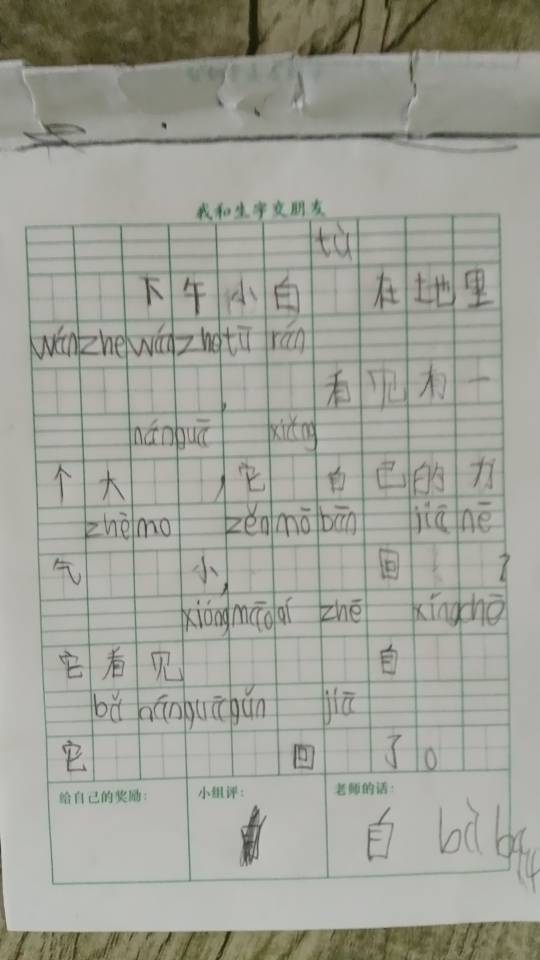 我和生字交朋友
tù
下午小白 在地里
wánzhe wánzhe tū rán
， 看见有一
nánguā xiǎng
个大 ，它 自己的力
zhēmo zěnmō bān jiā nē
气 小， 回 ？
xióngmāoqí zhē xíngchē
它看见 自
bǎ nánguāgǔn jiā
它 回 了。
给自己的奖励：
小组评：
老师的话：
自 bà